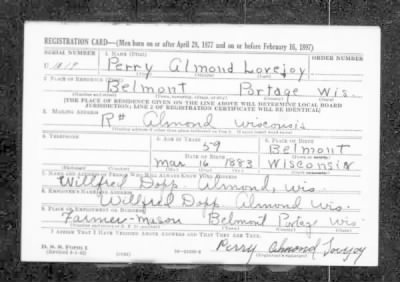 REGISTRATION CARD—(Men born on or after April 28, 1877 and on or before February 16, 1897)
SERIAL NUMBER 1. NAME (Print) ORDER NUMBER
U Perry Almond Lovejoy
(First) (Middle) (Last)
2. PLACE OF RESIDENCE (Print)
Belmont Portage Wis.
(Number and street) (Town, township, village, or city) (County) (State)
[THE PLACE OF RESIDENCE GIVEN ON THE LINE ABOVE WILL DETERMINE LOCAL BOARD
JURISDICTION; LINE 2 OF REGISTRATION CERTIFICATE WILL BE IDENTICAL]
3. MAILING ADDRESS
R# Almond Wisconsin
4. TELEPHONE 5. AGE IN YEARS 6. PLACE OF BIRTH
59 Belmont
DATE OF BIRTH
Mar 16 1883 Wisconsin
(Exchange) (Number) (Mo.) (Day) (Yr.) (State or country)
7. NAME AND ADDRESS OF PERSON WHO WILL ALWAYS KNOW YOUR ADDRESS
Willfred Dopp. Almond, Wis.
8. EMPLOYER'S NAME AND ADDRESS
Willfred Dopp Almond Wis.
9. PLACE OF EMPLOYMENT OR BUSINESS
Farmer-mason Belmont Portage Wis
(Number and street or R. F. D. number) (Town) (County) (State)
I AFFIRM THAT I HAVE VERIFIED ABOVE ANSWERS AND THAT THEY ARE TRUE.
D. S. S. Form 1
Perry Almond Lovejoy
(Registrant's signature)